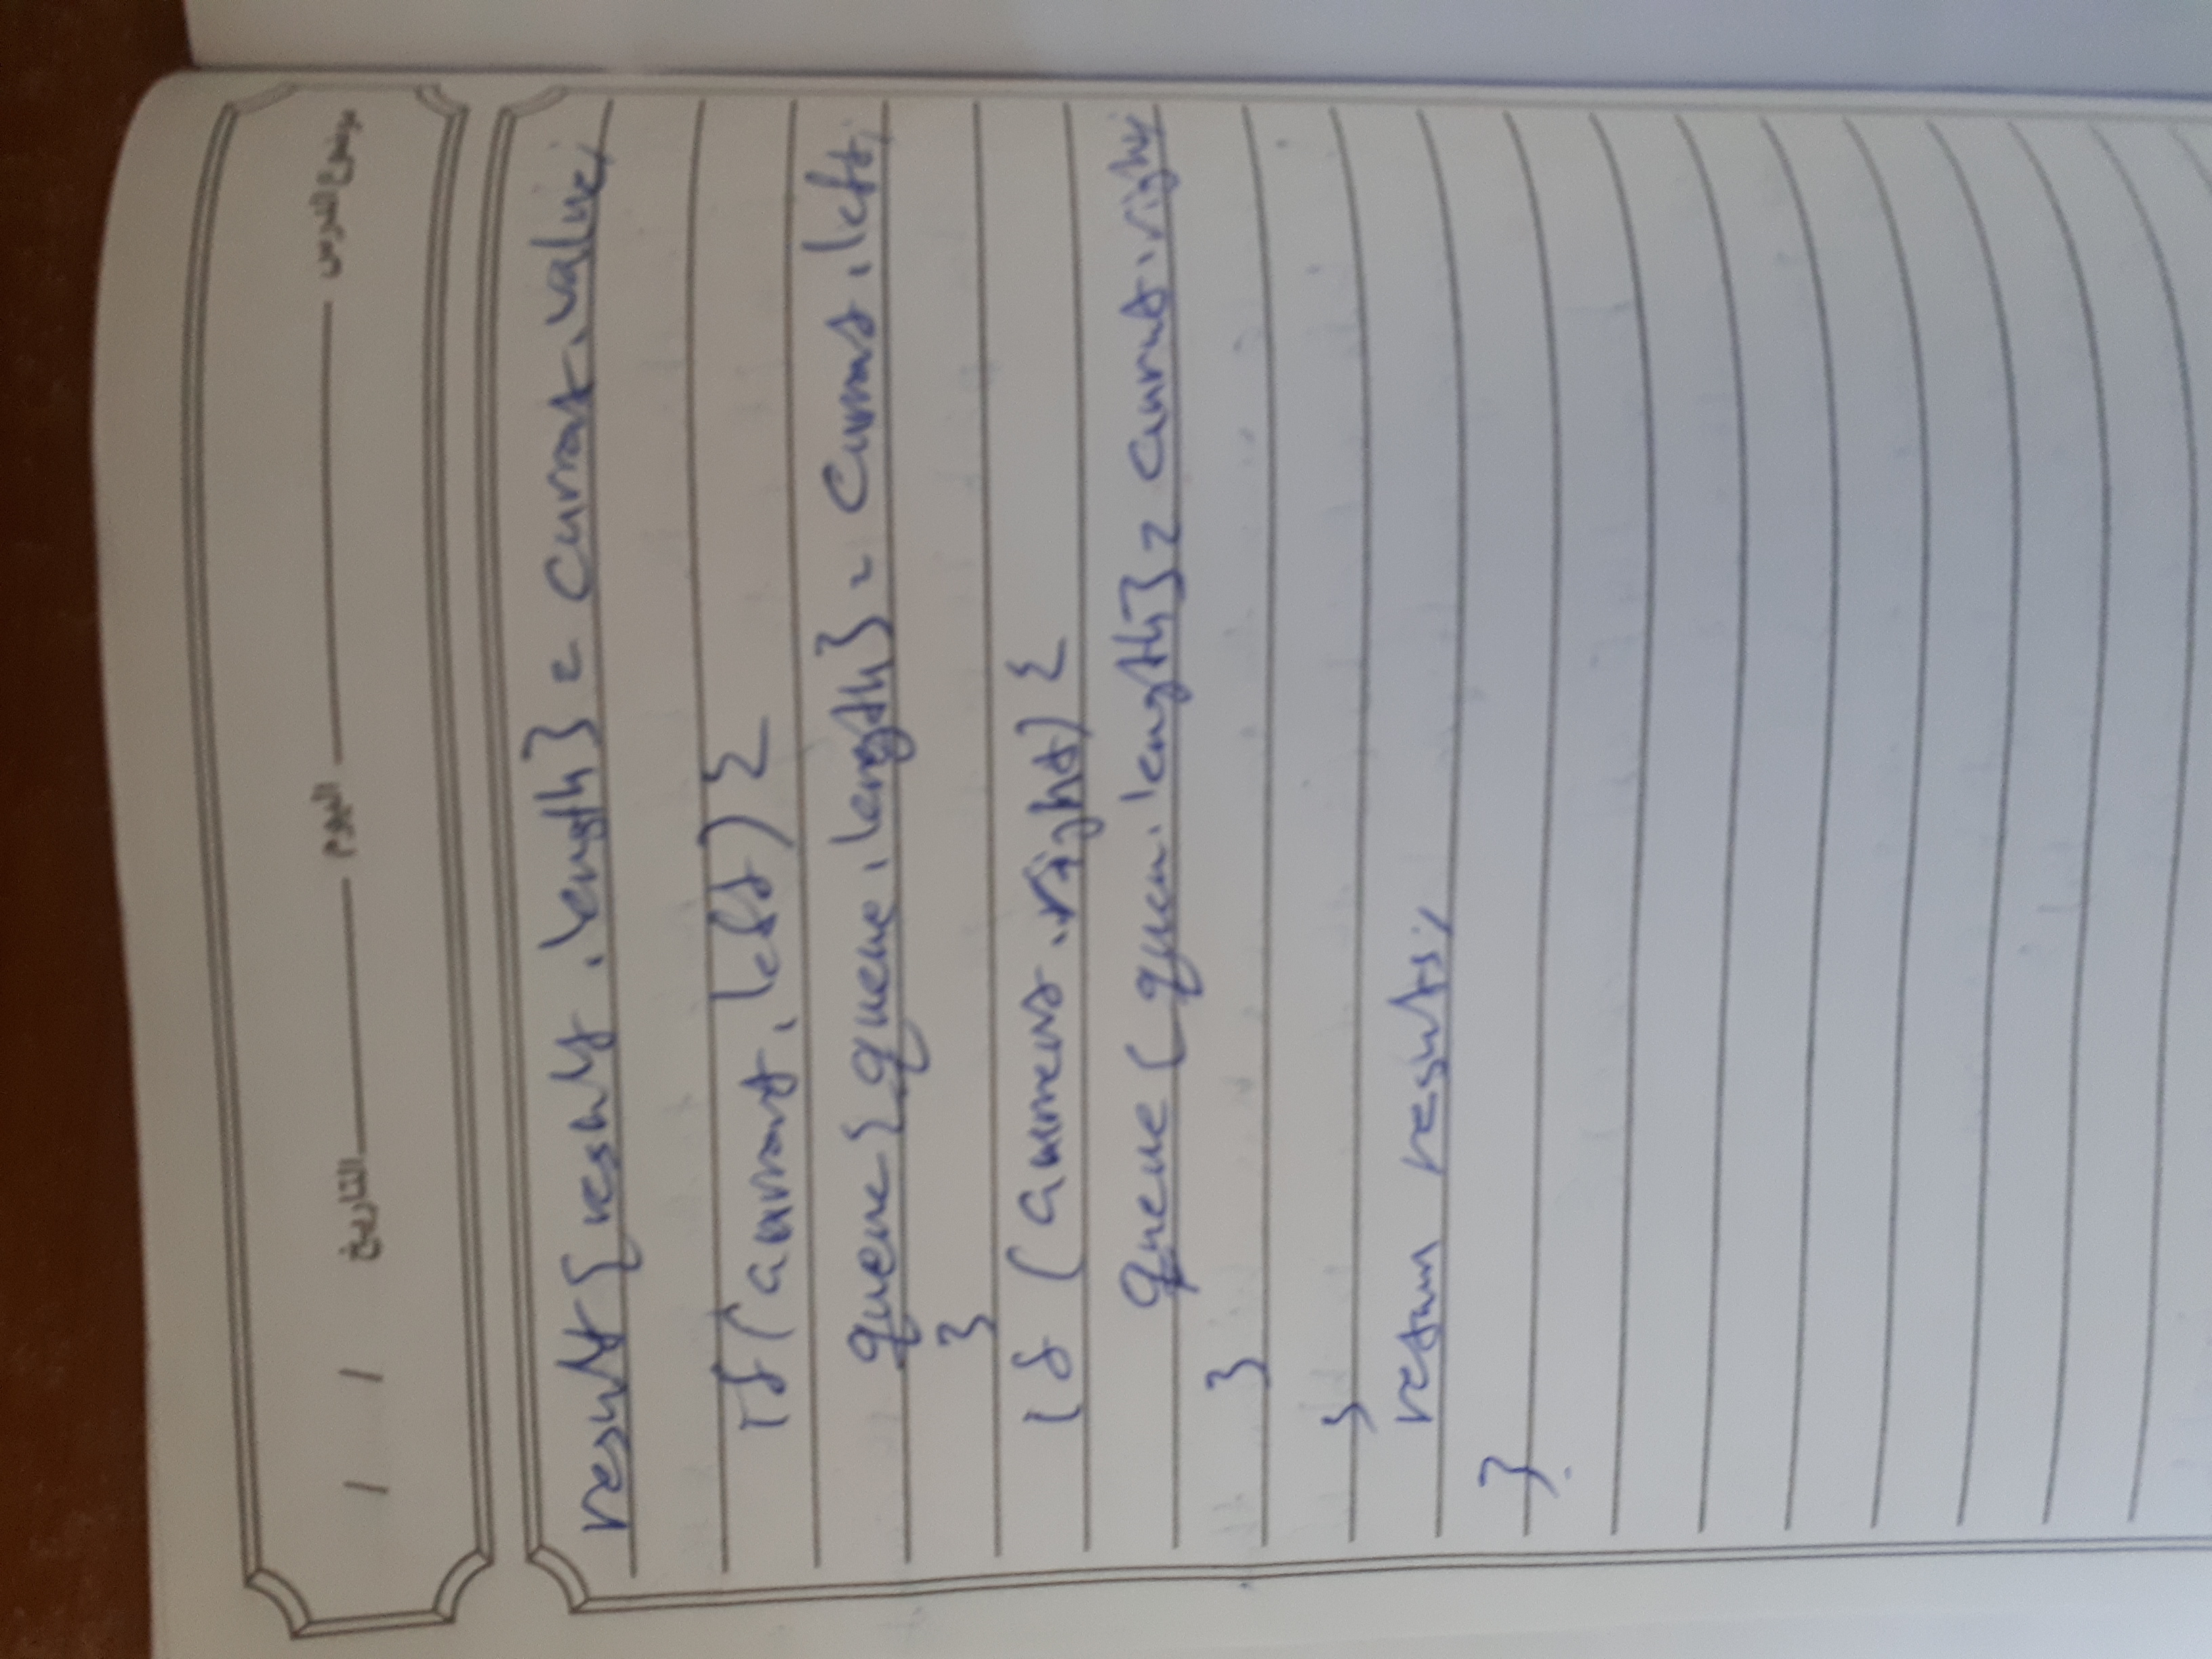 موضوع الدرس اليوم التاريخ / /
result{result.length} = current.value;
if(current.left) {
queue{queue.length} = current.left;
}
if (current.right) {
queue [queue.length] = current.right;
}
}
return results;
}